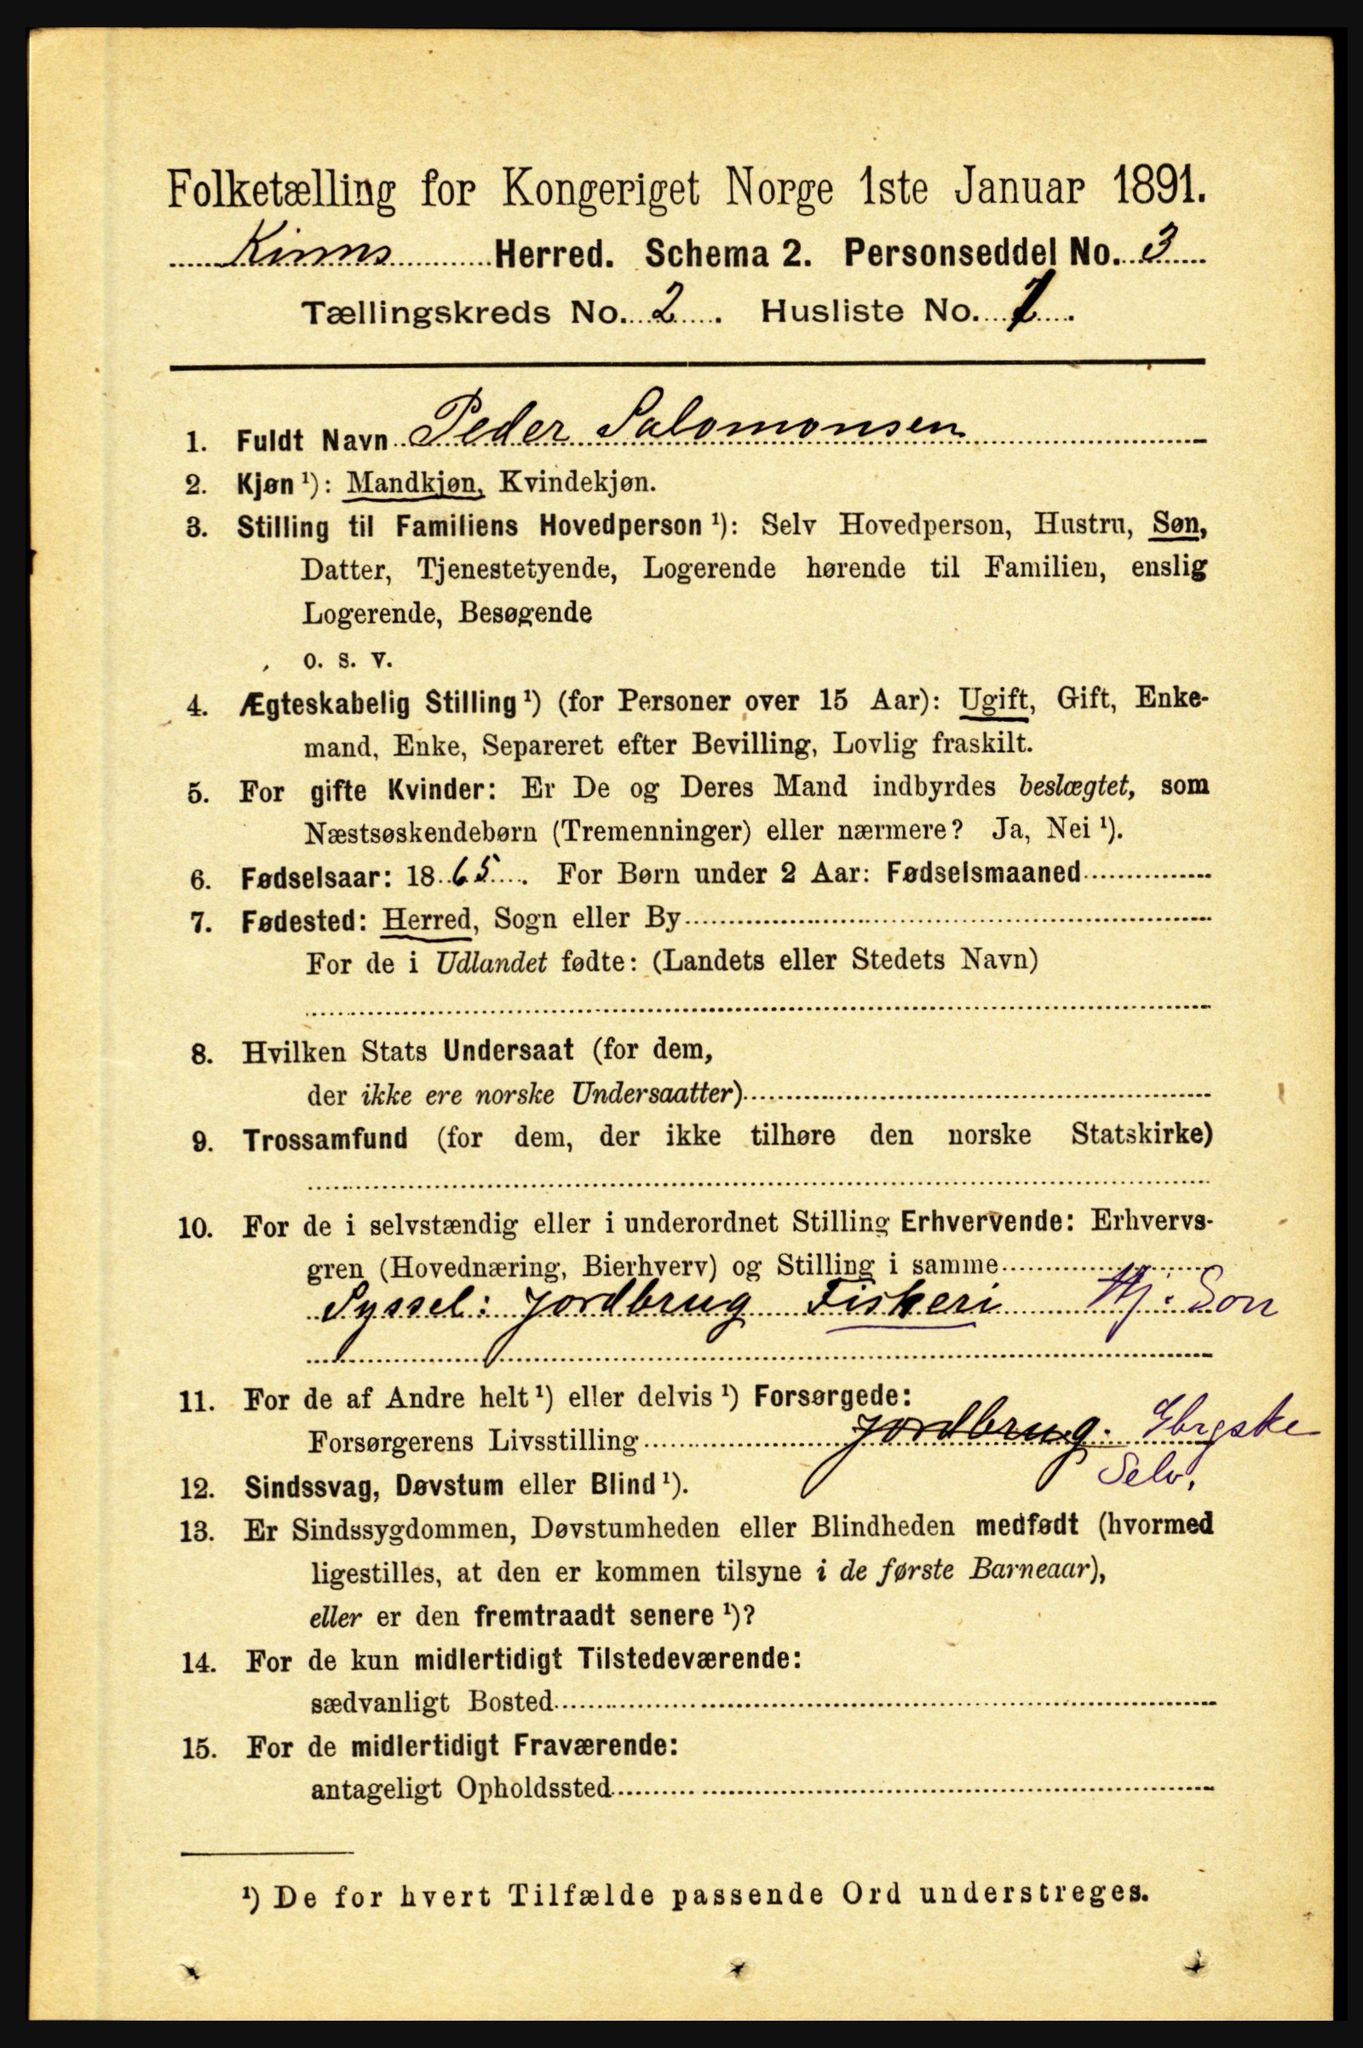 Folketælling for Kongeriget Norge 1ste Januar 1891.
Kinns Herred. Schema 2. Personseddel No. 3
Tællingskreds No. 2. Husliste No. 1.
1. Fuldt Navn Peder Salomonsen
2. Kjøn ¹): Mandkjøn, Kvindekjøn.
3. Stilling til Familiens Hovedperson ¹): Selv Hovedperson, Hustru, Søn,
Datter, Tjenestetyende, Logerende hørende til Familien, enslig
Logerende, Besøgende
o. s. v.
4. Ægteskabelig Stilling ¹) (for Personer over 15 Aar): Ugift, Gift, Enke-
mand, Enke, Separeret efter Bevilling, Lovlig fraskilt.
5. For gifte Kvinder: Er De og Deres Mand indbyrdes beslægtet, som
Næstsøskendebørn (Tremenninger) eller nærmere? Ja, Nei ¹).
6. Fødselsaar: 1865. For Børn under 2 Aar: Fødselsmaaned
7. Fødested: Herred, Sogn eller By
For de i Udlandet fødte: (Landets eller Stedets Navn)
8. Hvilken Stats Undersaat (for dem,
der ikke ere norske Undersaatter)
9. Trossamfund (for dem, der ikke tilhøre den norske Statskirke)
10. For de i selvstændig eller i underordnet Stilling Erhvervende: Erhvervs-
gren (Hovednæring, Bierhverv) og Stilling i samme
Syssel: Jordbrug Fiskeri Hj. Søn
11. For de af Andre helt ¹) eller delvis ¹) Forsørgede:
Forsørgerens Livsstilling Jordbrug.
Selv.
12. Sindssvag, Døvstum eller Blind ¹).
13. Er Sindssygdommen, Døvstumheden eller Blindheden medfødt (hvormed
ligestilles, at den er kommen tilsyne i de første Barneaar),
eller er den fremtraadt senere ¹)?
14. For de kun midlertidigt Tilstedeværende:
sædvanligt Bosted
15. For de midlertidigt Fraværende:
antageligt Opholdssted
¹) De for hvert Tilfælde passende Ord understreges.